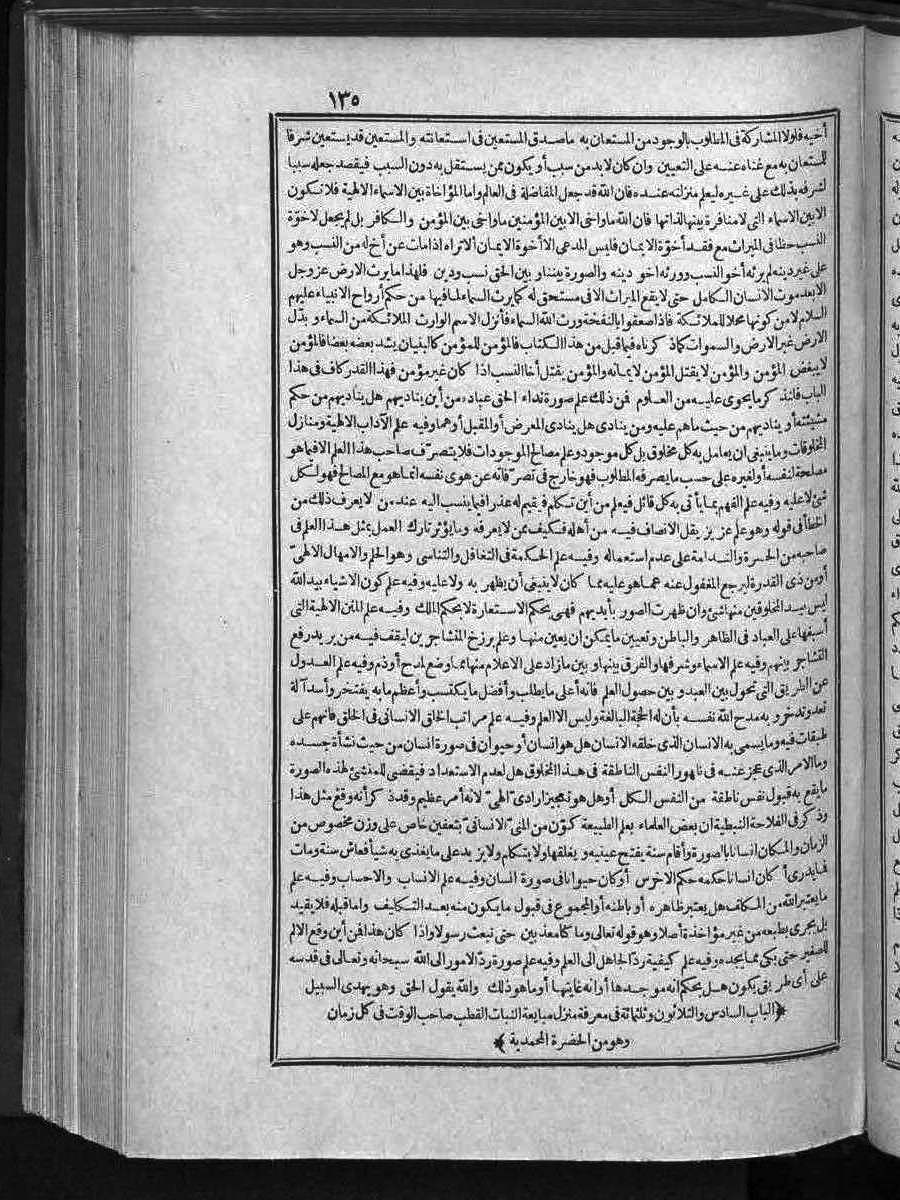 ١٣٥
أخيه فلولا المشاركة فى المطلوب بالوجود من المستعان به ماصدق المستعين فى استعانته والمستعين قد يستعين شرفا
للستعان به مع غناه عنه على التعيين وان كان لابد من سبب أو يكون ممن يستقل به دون السبب فيقصد جعله سببا
لشرفه بذلك على غيره ليعلم منزلته عنده فان الله قد جعل المفاضلة فى العالم واما المؤاخاة بين الاسماء الالهية فلا تكون
الابين الاسماء التى لا منافرة بينها لذاتها فان الله ما واخى الابين المؤمنين ما واخى بين المؤمن والكافر بل لم يجعل لاخوّة
النسب حظا فى الميراث مع فقد أخوّة الايمان فليس المدعى الا أخوة الايمان ألا تراه اذا مات عن أخ له من النسب وهو
على غير دينه لم يرثه أخو النسب وورثه اخو دينه والصورة بيننا وبين الحق نسب ودين فلهذا ما يرث الارض عز وجل
الا بعد موت الانسان الكامل حتى لا يقع الميراث الا فى مستحق له كما يرث السماء لما فيها من حكم أرواح الانبياء عليهم
السلام لا من كونها محلا للملائكة فاذا صعقوا بالنفخة ورث الله السماء فأنزل الاسم الوارث الملائكة من السماء وبدّل
الارض غير الارض والسموات كما ذكرناه فيما قبل من هذا الكتاب فالمؤمن للمؤمن كالبنيان يشد بعضه بعضا فالمؤمن
لا يبغض المؤمن والمؤمن لا يقتل المؤمن لايمانه والمؤمن يقتل أخا النسب اذا كان غير مؤمن فهذا القدر كاف فى هذا
الباب فلنذكر ما يحوى عليه من العلوم فمن ذلك علم صورة نداء الحق عباده من أين يناديهم هل يناديهم من حكم
مشيئته أو يناديهم من حيث ما هم عليه ومن ينادى هل ينادى المعرض أو المقبل أو هما وفيه علم الآداب الالهية ومنازل
المخلوقات وما ينبغى ان يعامل به كل مخلوق بل كل موجود وعلم مصالح الموجودات فلا يتصرّف صاحب هذا العلم الا فيما هو
مصلحة لنفسه أو لغيره على حسب ما يصرفه المطلوب فهو خارج فى تصرّفاته عن هوى نفسه انما هو مع المصالح فهو لكل
شئ لا عليه وفيه علم الفهم بما يأتى به كل قائل فيعلم من أين تكلم فيقيم له عذرا فيما ينسب اليه عند من لا يعرف ذلك من
الخطأ فى قوله وهو علم عزيز يقل الانصاف فيه من أهله فكيف ممن لا يعرفه وما يؤثر تارك العمل بمثل هذا العلم فى
صاحبه من الحسرة والندامة على عدم استعماله وفيه علم الحكمة فى التغافل والتناسى وهو الحلم والامهال الالهىّ
أو من ذى القدرة ليرجع المغفول عنه عما هو عليه مما كان لا ينبغى أن يظهر به ولا عليه وفيه علم كون الاشياء بيد الله
ليس بيد المخلوقين منها شئ وان ظهرت الصور بأيديهم فهى بحكم الاستعارة لا بحكم الملك وفيه علم المنن الالهية التى
أسبغها على العباد فى الظاهر والباطن وتعيين ما يمكن ان يعين منها وعلم برزخ المتشاجرين ليقف فيه من يريد رفع
التشاجر بينهم وفيه علم الاسماء وشرفها والفرق بينها وبين ما زاد على الاعلام منها مما وضع لمدح أو ذم وفيه علم العدول
عن الطريق التى تحول بين العبد وبين حصول العلم فانه أعلى ما يطلب وأفضل ما يكتسب وأعظم ما به يفتخر وأسد آلة
تعدّ وتدخر وبه مدح الله نفسه بأن له الحجة البالغة وليس الا العلم وفيه علم مراتب الخلق الانسانى فى الخلق فانهم على
طبقات فيه وما يسمى به الانسان الذى خلقه الانسان هل هو انسان أو حيوان فى صورة انسان من حيث نشأة جسده
وما الامر الذى عجز عنه فى ظهور النفس الناطقة فى هذا المخلوق هل لعدم الاستعداد فيقضى للمنشئ لهذه الصورة
ما يقع به قبول نفس ناطقة من النفس الكل أو هل هو تعجيز ارادىّ الهىّ لانه أمر عظيم وقد ذكر أنه وقع مثل هذا
وذكر فى الفلاحة النبطية ان بعض العلماء بعلم الطبيعة كوّن من المنىّ الانسانىّ بتعفين خاص على وزن مخصوص من
الزمان والمكان انسانا بالصورة وأقام سنة يفتح عينيه ويغلقها ولا يتكلم ولا يزيد على ما يغذى به شيأ فعاش سنة ومات
فما يدرى أ كان انسانا حكمه حكم الاخرس أو كان حيوانا فى صورة انسان وفيه علم الانساب والاحساب وفيه علم
ما يعتبر الله من المكلف هل يعتبر ظاهره أو باطنه أو المجموع فى قبول ما يكون منه بعد التكليف واما قبله فلا يقيد
بل يجرى بطبعه من غير مؤاخذة أصلا وهو قوله تعالى وما كنا معذبين حتى نبعث رسولا واذا كان هذا فمن أين وقع الالم
للصغير حتى بكى مما يجده وفيه علم كيفية ردّ الجاهل الى العلم وفيه علم صورة ردّ الامور الى الله سبحانه وتعالى فى قدسه
على أى طريق يكون هل بحكم انه موجدها أو انه غايتها أو ما هو ذلك والله يقول الحق وهو يهدى السبيل
﴿الباب السادس والثلاثون وثلثمائة فى معرفة منزل مبايعة النبات القطب صاحب الوقت فى كل زمان
وهو من الحضرة المحمدية﴾